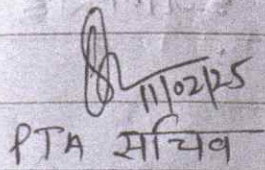 11/02/25
PTA सचिव